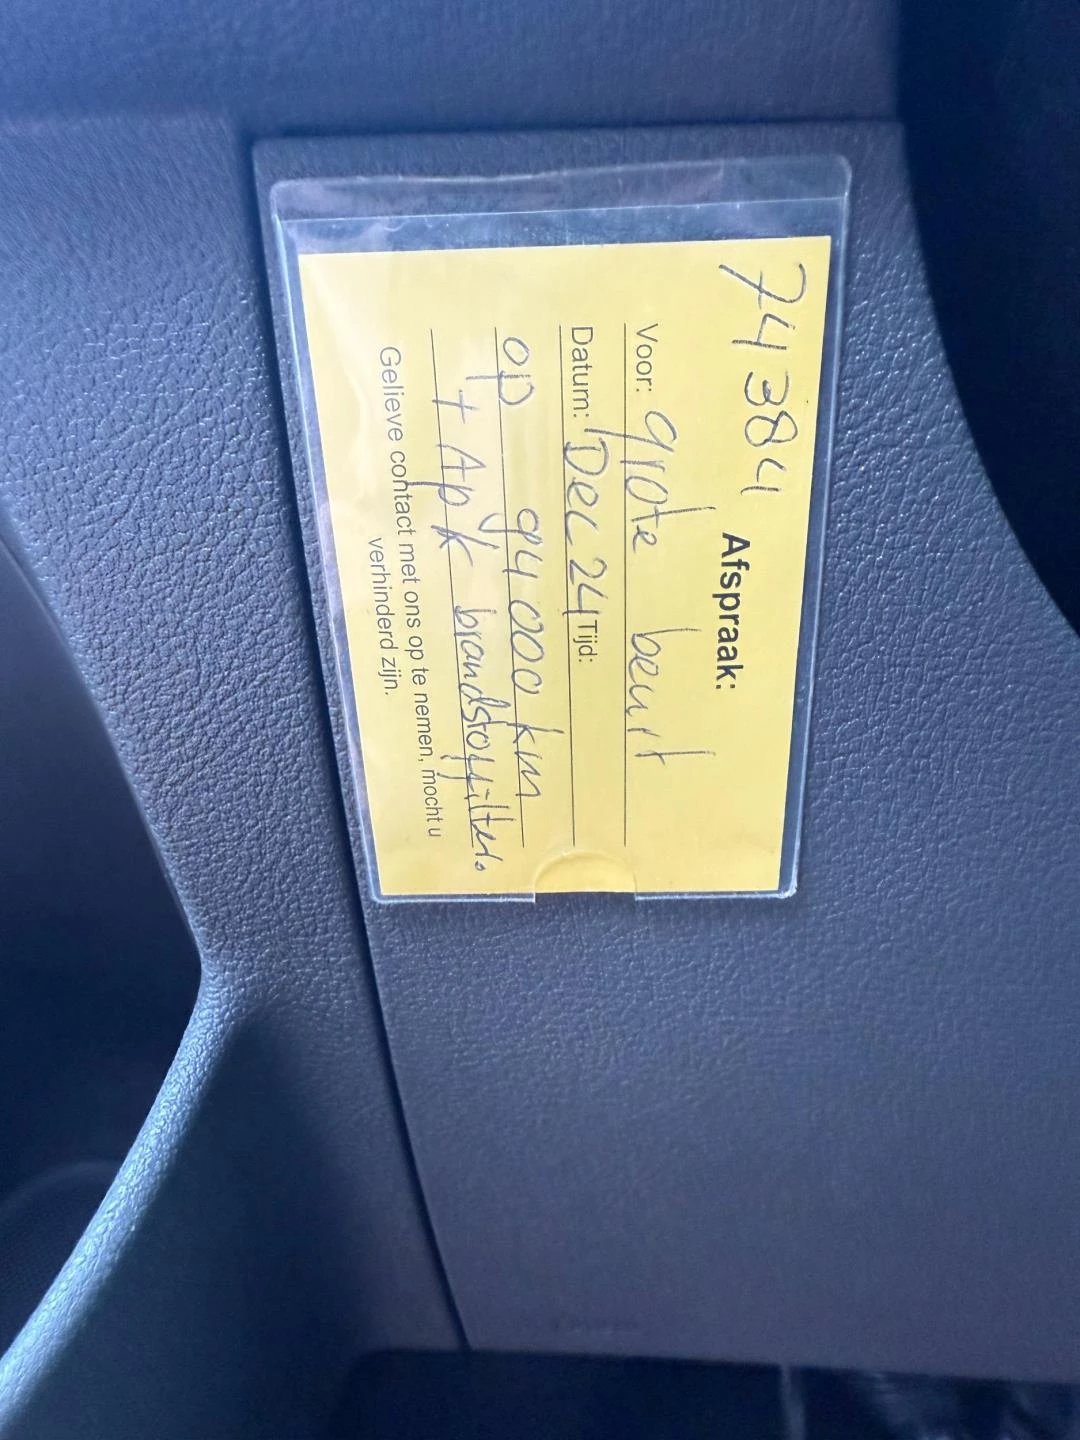 74384
Afspraak:
Voor: grote beurt
Datum: Dec 24 Tijd:
op 94000 km
+ Apk brandstoffilter.
Gelieve contact met ons op te nemen, mocht u
verhinderd zijn.